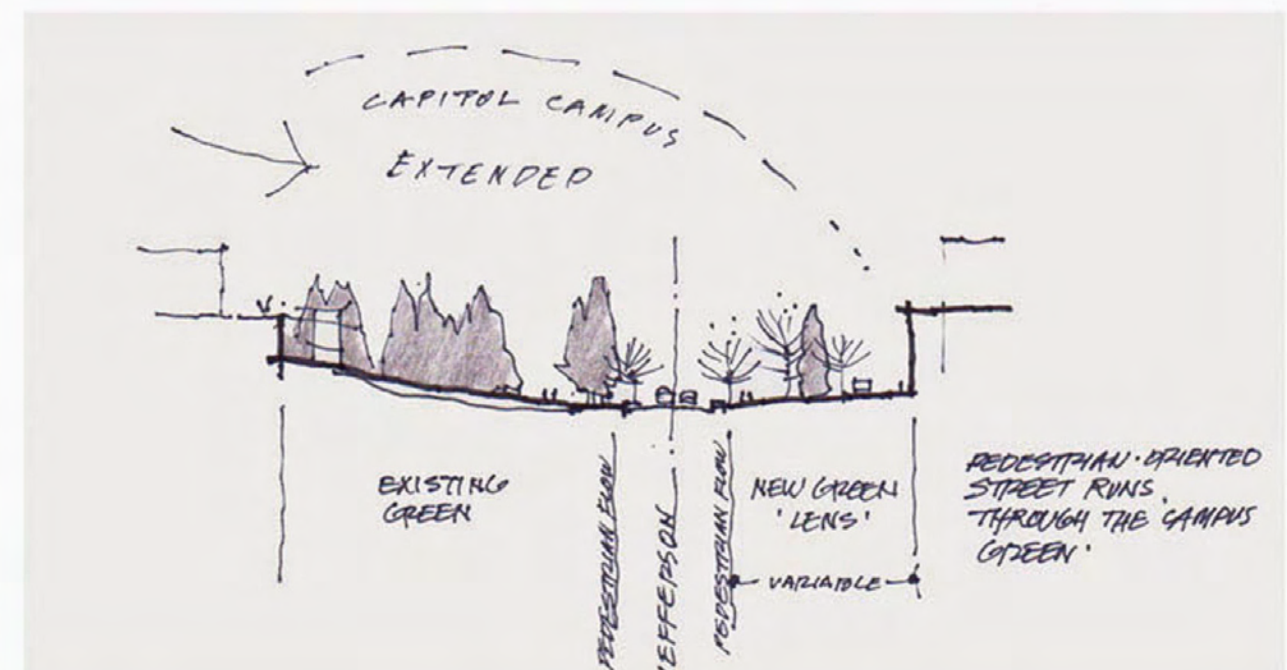 CAPITOL CAMPUS
EXTENDED
EXISTING
GREEN
PEDESTRIAN FLOW
JEFFERSON
PEDESTRIAN FLOW
NEW GREEN
'LENS'
VARIABLE
PEDESTRIAN·ORIENTED
STREET RUNS
THROUGH THE CAMPUS
GREEN·